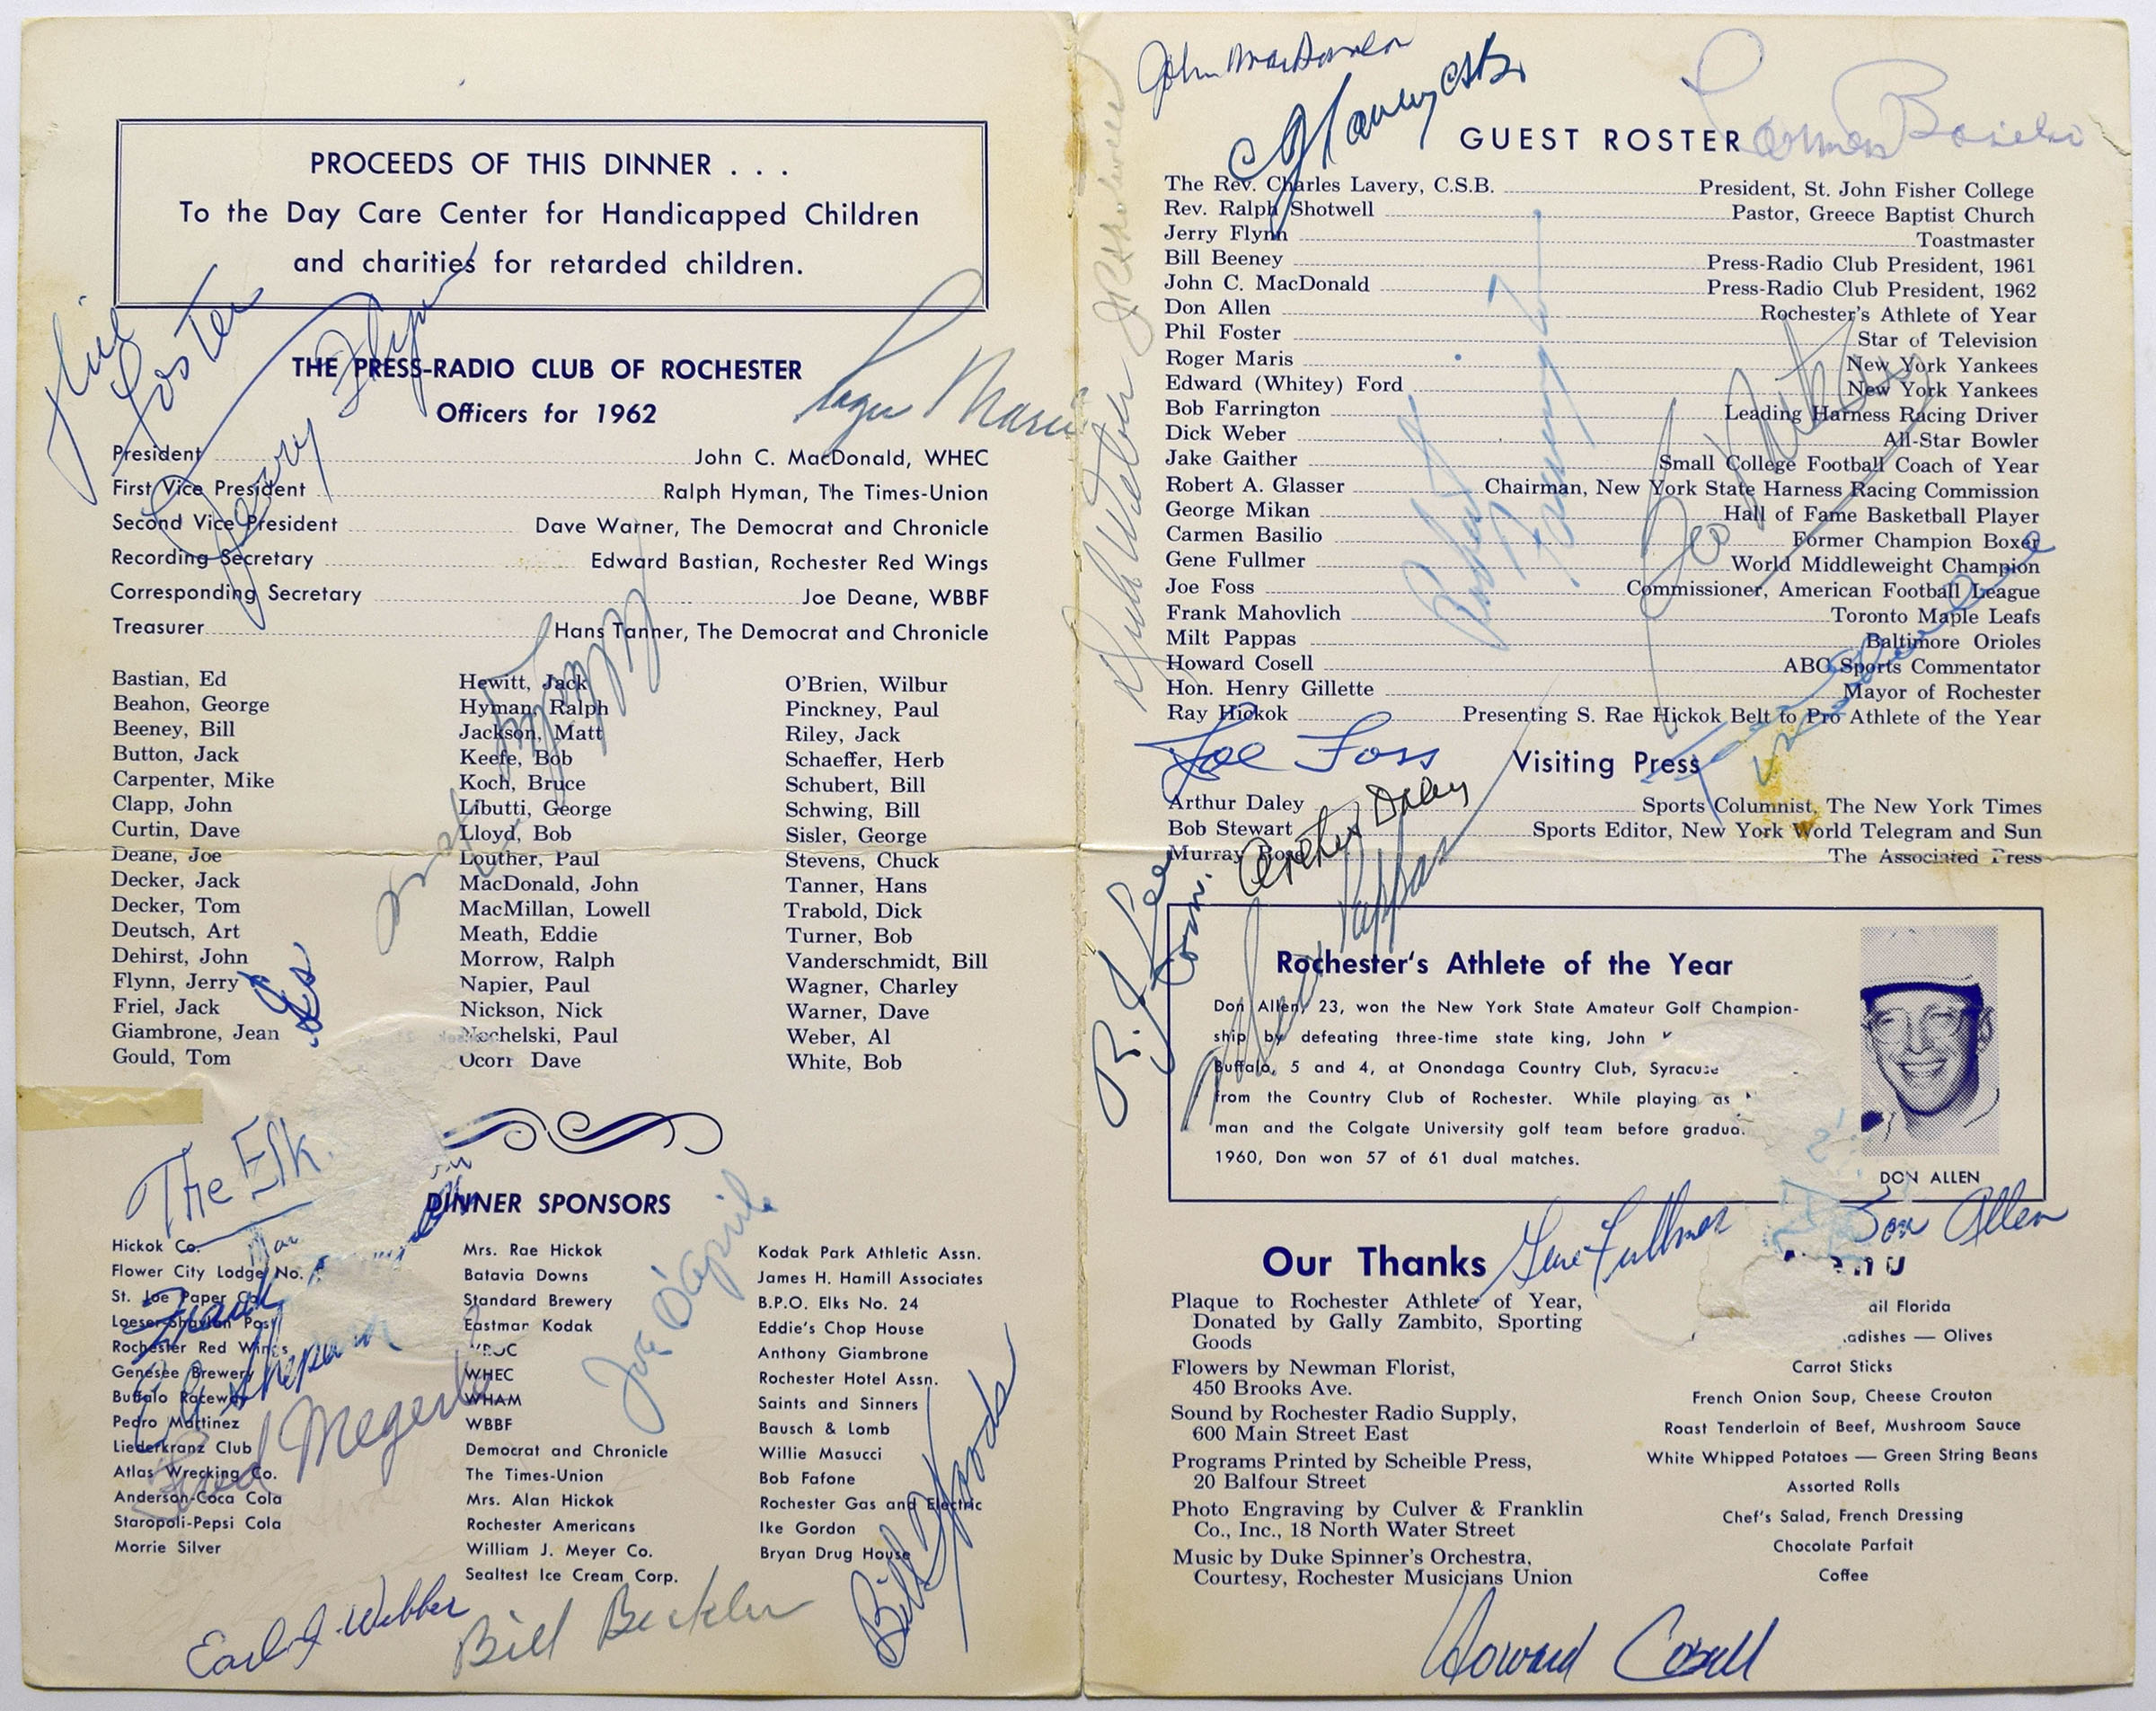 PROCEEDS OF THIS DINNER . . .
To the Day Care Center for Handicapped Children
and charities for retarded children.
Phil Foster
Jerry Flynn
Roger Maris
THE PRESS-RADIO CLUB OF ROCHESTER
Officers for 1962
President John C. MacDonald, WHEC
First Vice President Ralph Hyman, The Times-Union
Second Vice President Dave Warner, The Democrat and Chronicle
Recording Secretary Edward Bastian, Rochester Red Wings
Corresponding Secretary Joe Deane, WBBF
Treasurer Hans Tanner, The Democrat and Chronicle
Bastian, Ed
Beahon, George
Beeney, Bill
Button, Jack
Carpenter, Mike
Clapp, John
Curtin, Dave
Deane, Joe
Decker, Jack
Decker, Tom
Deutsch, Art
Dehirst, John
Flynn, Jerry
Friel, Jack
Giambrone, Jean
Gould, Tom
Hewitt, Jack
Hyman, Ralph
Jackson, Matt
Keefe, Bob
Koch, Bruce
Libutti, George
Lloyd, Bob
Louther, Paul
MacDonald, John
MacMillan, Lowell
Meath, Eddie
Morrow, Ralph
Napier, Paul
Nickson, Nick
Nochelski, Paul
Ocorr Dave
O'Brien, Wilbur
Pinckney, Paul
Riley, Jack
Schaeffer, Herb
Schubert, Bill
Schwing, Bill
Sisler, George
Stevens, Chuck
Tanner, Hans
Trabold, Dick
Turner, Bob
Vanderschmidt, Bill
Wagner, Charley
Warner, Dave
Weber, Al
White, Bob
The Elk
DINNER SPONSORS
Hickok Co.
Flower City Lodge No.
St. Joe Paper Co.
Loeser-Shavlan Post
Rochester Red Wings
Genesee Brewery
Buffalo Raceway
Pedro Martinez
Liederkranz Club
Atlas Wrecking Co.
Anderson-Coca Cola
Staropoli-Pepsi Cola
Morrie Silver
Mrs. Rae Hickok
Batavia Downs
Standard Brewery
Eastman Kodak
WHEC
WHAM
WBBF
Democrat and Chronicle
The Times-Union
Mrs. Alan Hickok
Rochester Americans
William J. Meyer Co.
Sealtest Ice Cream Corp.
Kodak Park Athletic Assn.
James H. Hamill Associates
B.P.O. Elks No. 24
Eddie's Chop House
Anthony Giambrone
Rochester Hotel Assn.
Saints and Sinners
Bausch & Lomb
Willie Masucci
Bob Fafone
Rochester Gas and Electric
Ike Gordon
Bryan Drug House
Fred Megerle
Joe D'Aprile
Earl J. Webber
Bill Beckler
Bill
John MacDonald
C Lavery CSB
Carmen Basilio
GUEST ROSTER
The Rev. Charles Lavery, C.S.B. President, St. John Fisher College
Rev. Ralph Shotwell Pastor, Greece Baptist Church
Jerry Flynn Toastmaster
Bill Beeney Press-Radio Club President, 1961
John C. MacDonald Press-Radio Club President, 1962
Don Allen Rochester's Athlete of Year
Phil Foster Star of Television
Roger Maris New York Yankees
Edward (Whitey) Ford New York Yankees
Bob Farrington Leading Harness Racing Driver
Dick Weber All-Star Bowler
Jake Gaither Small College Football Coach of Year
Robert A. Glasser Chairman, New York State Harness Racing Commission
George Mikan Hall of Fame Basketball Player
Carmen Basilio Former Champion Boxer
Gene Fullmer World Middleweight Champion
Joe Foss Commissioner, American Football League
Frank Mahovlich Toronto Maple Leafs
Milt Pappas Baltimore Orioles
Howard Cosell ABC Sports Commentator
Hon. Henry Gillette Mayor of Rochester
Ray Hickok Presenting S. Rae Hickok Belt to Pro Athlete of the Year
Dick Weber
Joe Foss
Visiting Press
Arthur Daley Sports Columnist, The New York Times
Bob Stewart Sports Editor, New York World Telegram and Sun
Murray Rose The Associated Press
Arthur Daley
Milt Pappas
Rochester's Athlete of the Year
Don Allen, 23, won the New York State Amateur Golf Champion-
ship by defeating three-time state king, John
Buffalo, 5 and 4, at Onondaga Country Club, Syracuse
from the Country Club of Rochester. While playing as
man and the Colgate University golf team before gradua
1960, Don won 57 of 61 dual matches.
DON ALLEN
Don Allen
Gene Fullmer
Our Thanks
Plaque to Rochester Athlete of Year,
Donated by Gally Zambito, Sporting
Goods
Flowers by Newman Florist,
450 Brooks Ave.
Sound by Rochester Radio Supply,
600 Main Street East
Programs Printed by Scheible Press,
20 Balfour Street
Photo Engraving by Culver & Franklin
Co., Inc., 18 North Water Street
Music by Duke Spinner's Orchestra,
Courtesy, Rochester Musicians Union
ail Florida
adishes — Olives
Carrot Sticks
French Onion Soup, Cheese Crouton
Roast Tenderloin of Beef, Mushroom Sauce
White Whipped Potatoes — Green String Beans
Assorted Rolls
Chef's Salad, French Dressing
Chocolate Parfait
Coffee
Howard Cosell